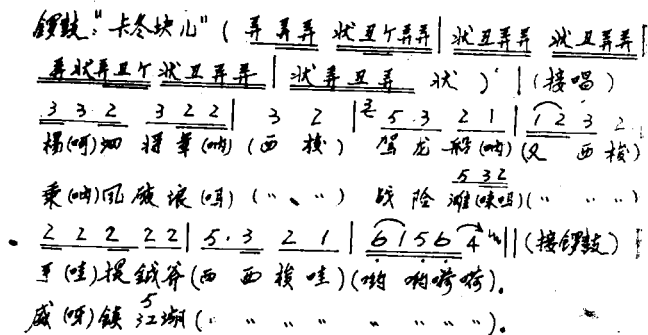 锣鼓："卡冬块儿"（弄弄弄 状丑个弄弄｜状丑弄弄 状丑弄弄｜
弄状弄丑个 状丑弄弄｜状弄丑弄 状）｜（接唱）
3 3 2 3 2 2｜3 2｜5·3 2 1｜1 2 3 2
杨(呵)泗将军(呐)（西梭）驾龙船(呐)（又西梭）
5 3 2
乘(呐)风破浪(呵)（〃、〃）战险滩(味呵)（〃 〃 〃）
2 2 2 2 2｜5·3 2 1｜6 1 5 6 4‖（接锣鼓）
手(哇)提钺斧（西西梭哇）（哟 哟嗬嗬）。
5
威(呀)镇江湖（〃 〃 〃 〃 〃 〃 〃 〃）。